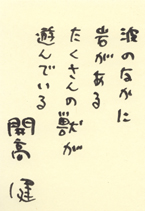 波のなかに
岩がある
たくさんの獣が
遊んでいる
開高 健